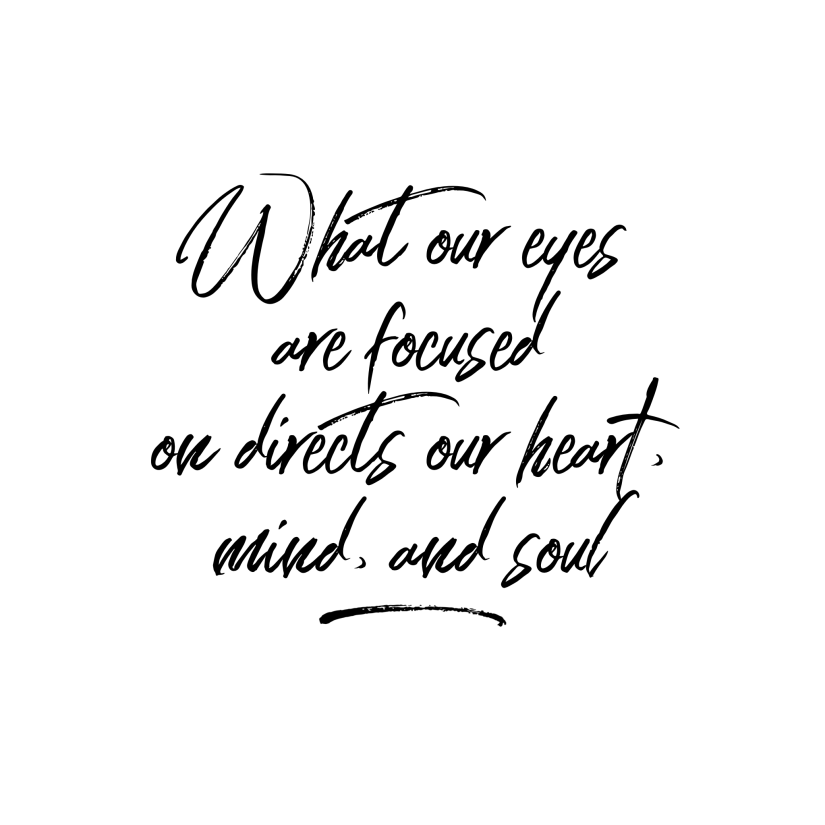 What our eyes
are focused
on directs our heart,
mind, and soul